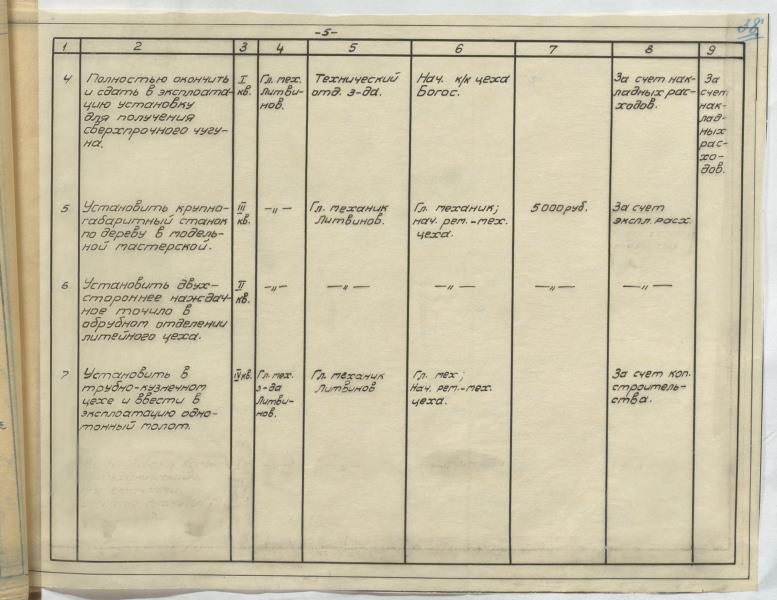 -5-
38
1 2 3 4 5 6 7 8 9
4
Полностью окончить
и сдать в эксплоата-
цию установку
для получения
сверхпрочного чугу-
на.
I
кв.
Гл. мех.
Литви-
нов.
Технический
отд. з-да.
Нач. к/к цеха
Богос.
За счет нак-
ладных рас-
ходов.
За
счет
нак-
лад-
ных
рас-
хо-
дов.
5
Установить крупно-
габаритный станок
по дереву в модель-
ной мастерской.
III
кв.
—„—
Гл. механик
Литвинов.
Гл. механик;
нач. рем.-мех.
цеха.
5000 руб.
За счет
экспл. расх.
6
Установить двух-
стороннее наждач-
ное точило в
обрубном отделении
литейного цеха.
II
кв.
—„—
—„—
—„—
—„—
—„—
7
Установить в
трубно-кузнечном
цехе и ввести в
эксплоатацию одно-
тонный молот.
IV кв.
Гл. мех.
з-да
Литви-
нов.
Гл. механик
Литвинов
Гл. мех;
Нач. рем.-мех.
цеха.
За счет кап.
строитель-
ства.